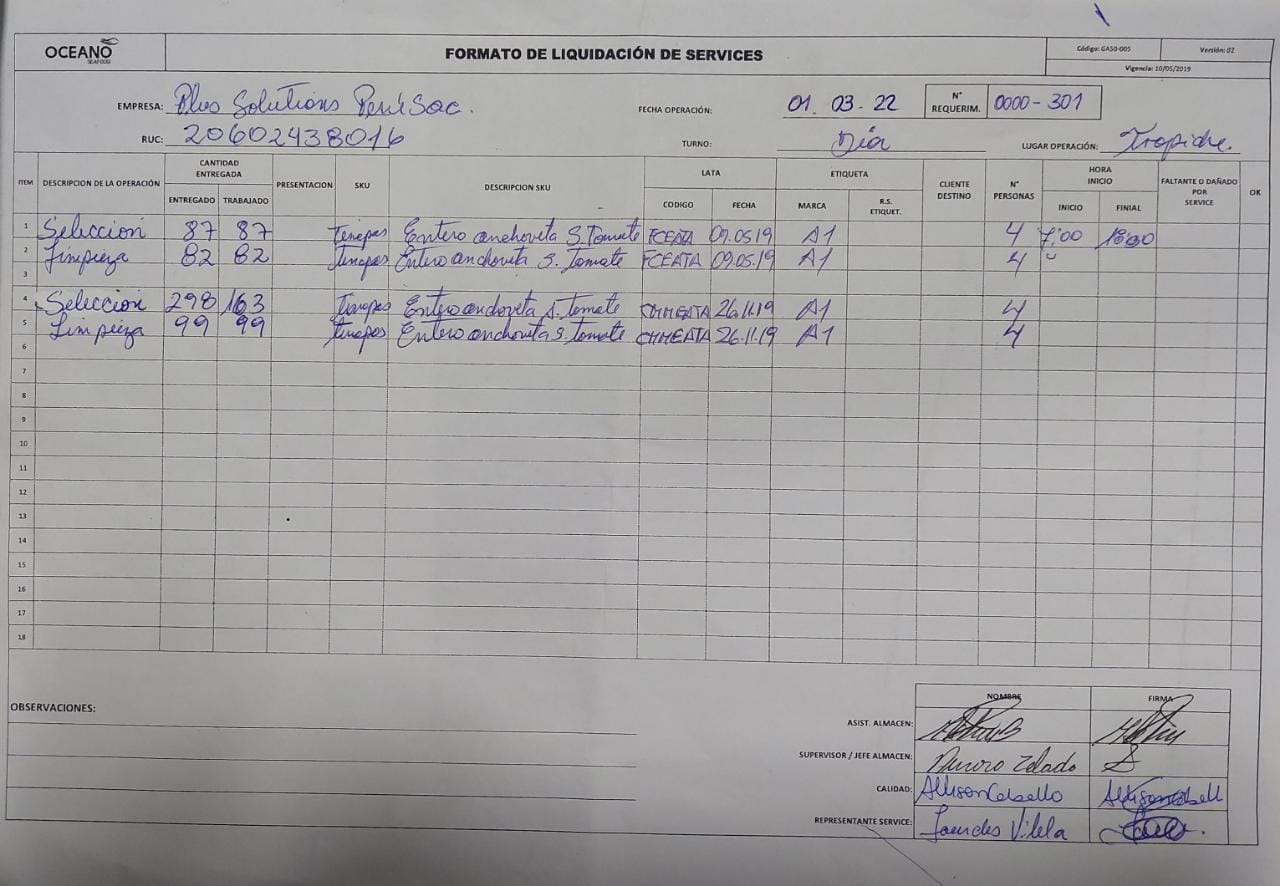 OCEANO
SEAFOOD
FORMATO DE LIQUIDACIÓN DE SERVICES
Código: GASO-005 Versión: 02
Vigencia: 10/05/2019
EMPRESA: Plus Solutions Perú Sac. FECHA OPERACIÓN: 01.03.22 N° REQUERIM. 0000-301
RUC: 20602438016 TURNO: Día LUGAR OPERACIÓN: Tropiche.
ITEM DESCRIPCION DE LA OPERACIÓN CANTIDAD ENTREGADA PRESENTACION SKU DESCRIPCION SKU LATA ETIQUETA CLIENTE DESTINO N° PERSONAS HORA INICIO FALTANTE O DAÑADO POR SERVICE OK
ENTREGADO TRABAJADO CODIGO FECHA MARCA R.S. ETIQUET. INICIO FINIAL
1 Seleccion 87 87 Tinapas Entero anchoveta S. Tomate FCEATA 09.05.19 A1 4 7:00
2 Limpieza 82 82 Tinapas Entero anchoveta S. Tomate FCEATA 09.05.19 A1 4 "
3
4 Seleccion 298 163 Tinapas Entero anchoveta S. Tomate CHMEATA 26.11.19 A1 4
5 Limpieza 99 99 Tinapas Entero anchoveta S. Tomate CHMEATA 26.11.19 A1 4
6
7
8
9
10
11
12
13
14
15
16
17
18
NOMBRE FIRMA
OBSERVACIONES:
ASIST. ALMACEN:
SUPERVISOR / JEFE ALMACEN:
CALIDAD: Allison Cabello
REPRESENTANTE SERVICE: Lourdes Vilela